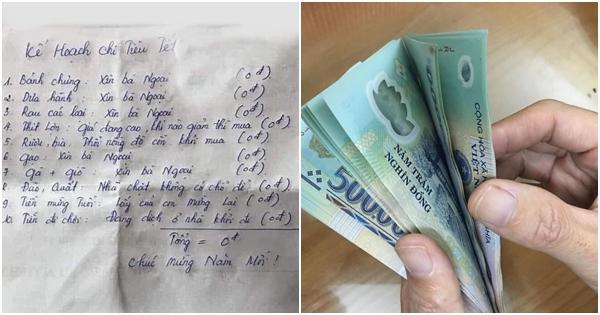 Kế Hoạch chi Tiêu Tết
1. Bánh chưng: Xin bà Ngoại (0đ)
2. Dưa hành: Xin bà Ngoại (0đ)
3. Rau các loại: Xin bà Ngoại (0đ)
4. Thịt Lợn: Giá đang cao, khi nào giảm thì mua (0đ)
5. Rượu, bia: Phạt nồng độ cồn khỏi mua (0đ)
6. Gạo: Xin bà Ngoại (0đ)
7. Gà + giò: Xin bà Ngoại (0đ)
8. Đào, Quất: Nhà chật không có chỗ để (0đ)
9. Tiền mừng Tuổi: Lấy của con mừng Lại (0đ)
10. Tiền đi chơi: Đang dịch ở nhà khỏi đi (0đ)
Tổng = 0đ
Chúc mừng Năm Mới!
500.00
NĂM TRĂM
NGHÌN ĐỒNG
CỘNG HÒA XÃ
VIỆT